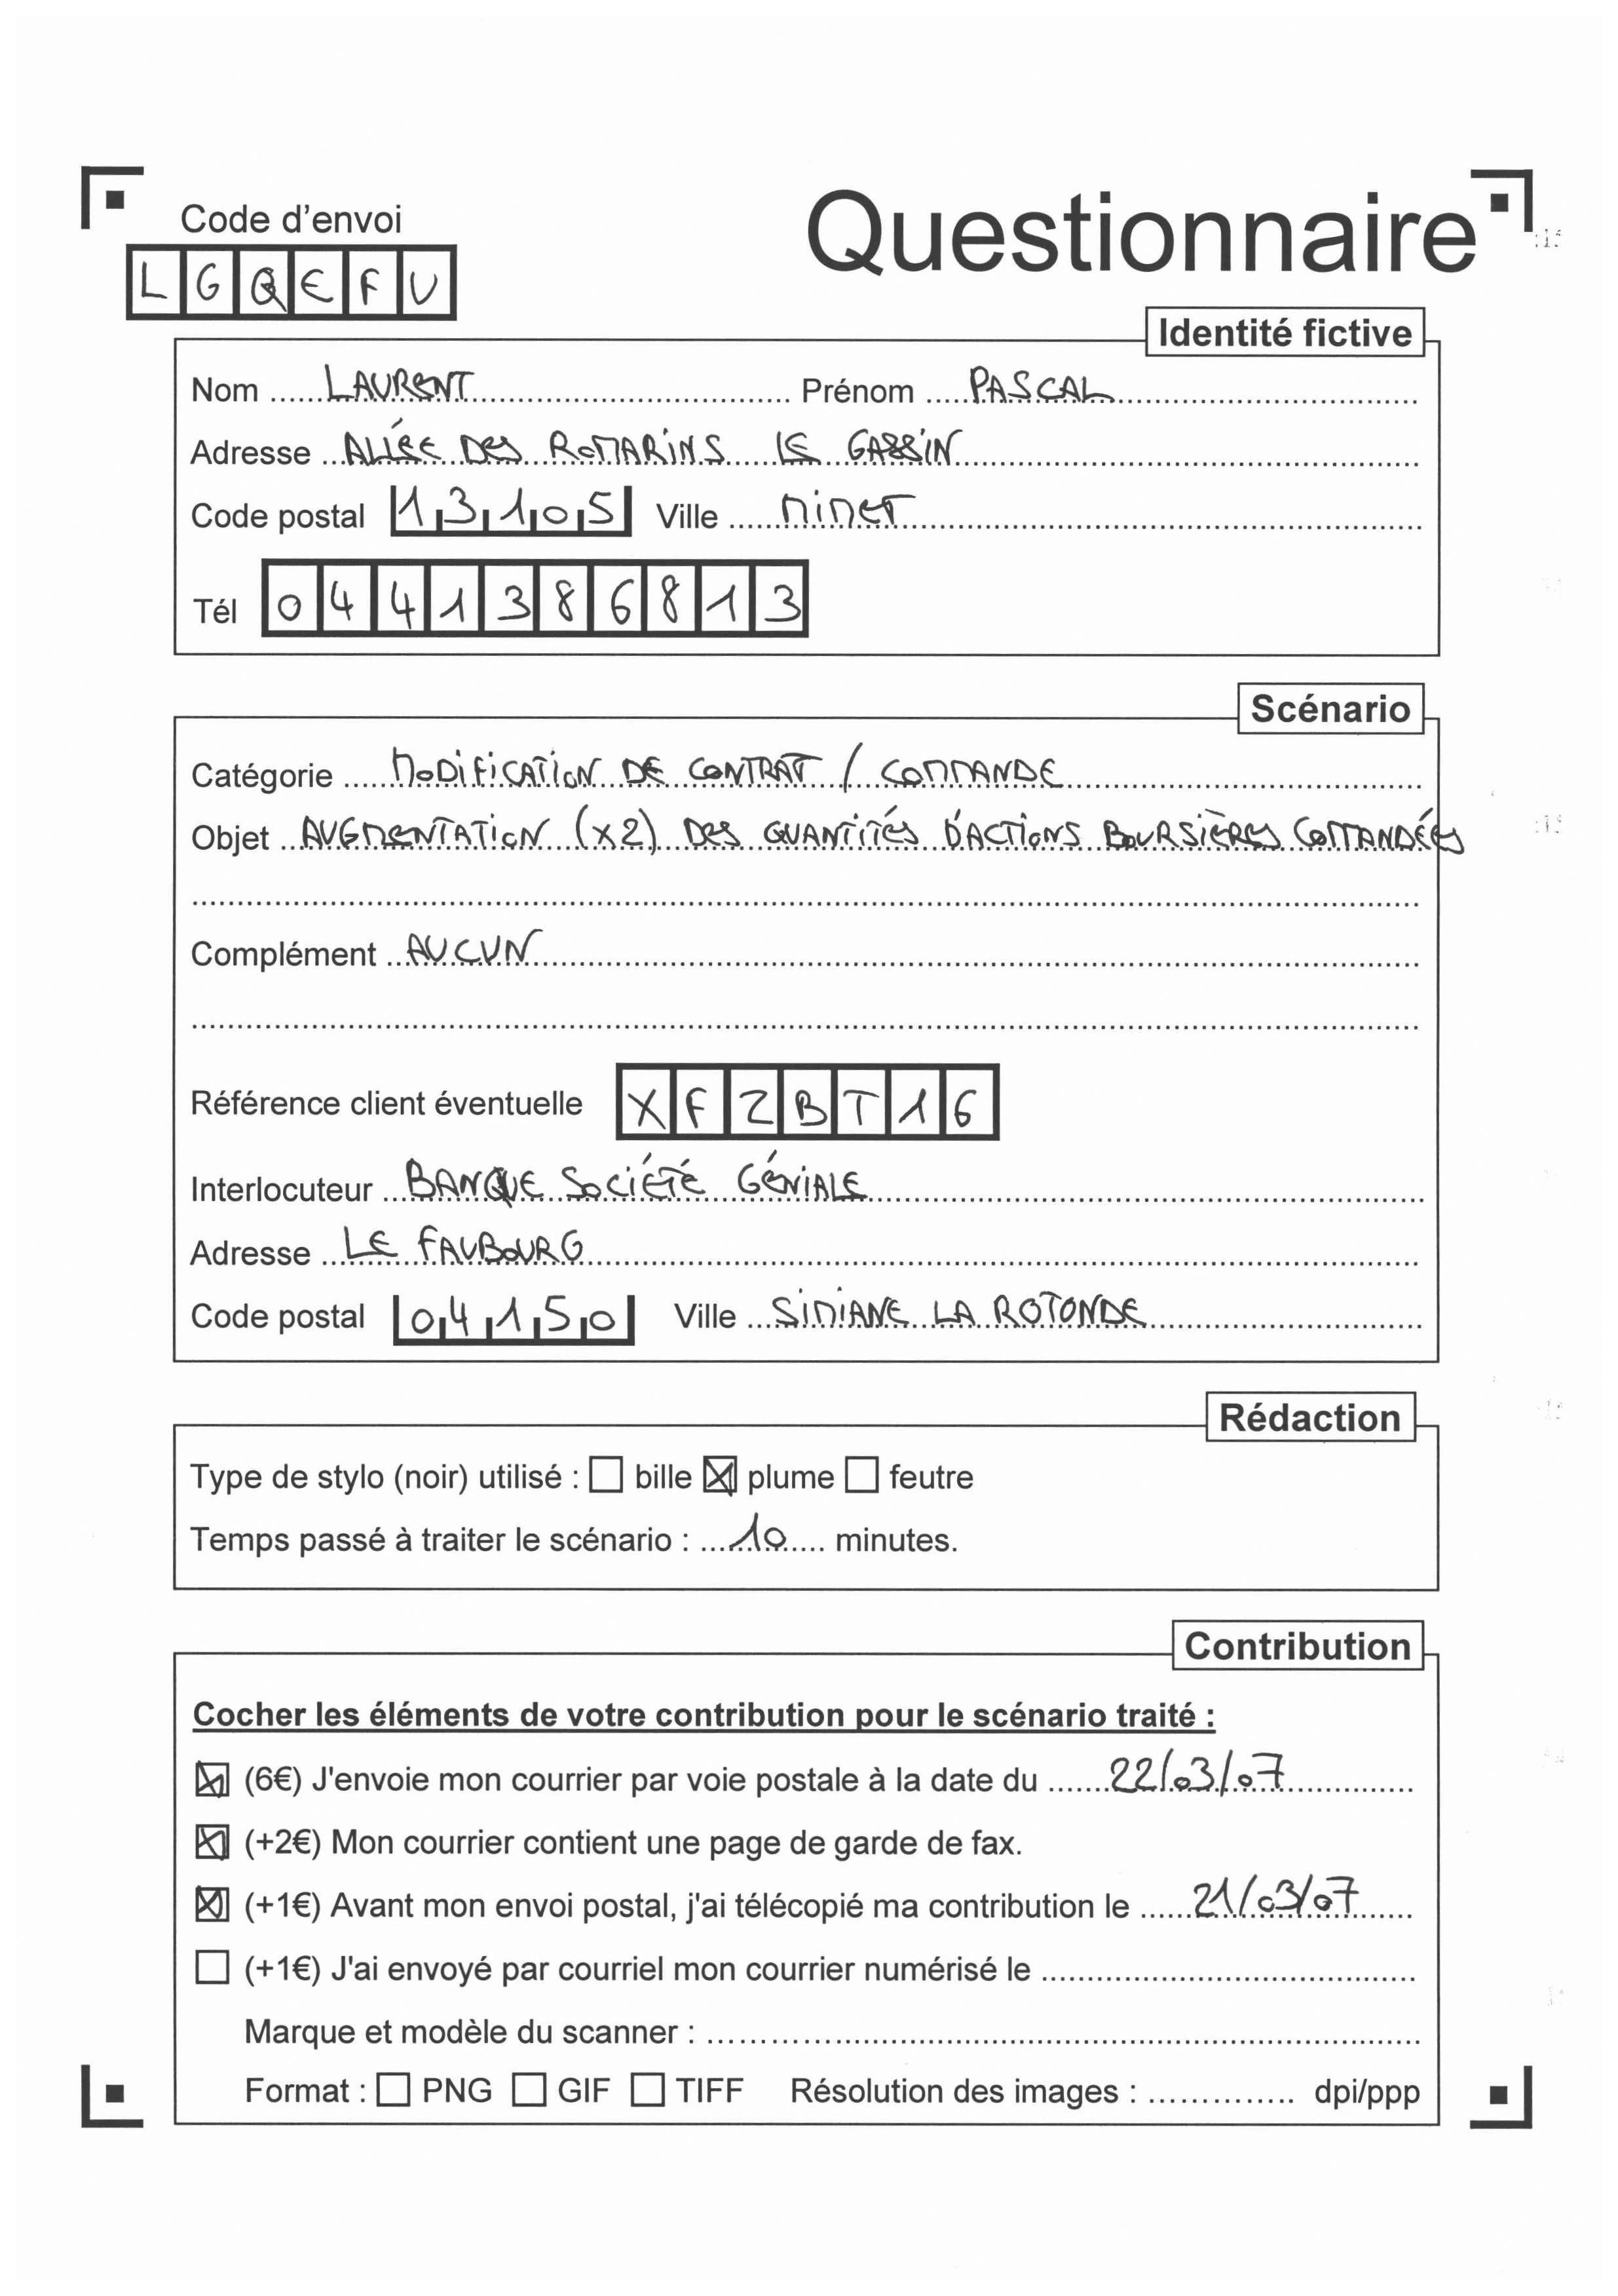 Code d'envoi
Questionnaire
LGQEFU
Identité fictive
Nom LAURENT Prénom PASCAL
Adresse ALLÉE DES ROMARINS LE GASSIN
Code postal 13105 Ville MIMET
Tél 0441386813
Scénario
Catégorie MODIFICATION DE CONTRAT / COMMANDE
Objet AUGMENTATION (x2) DES QUANTITÉS D'ACTIONS BOURSIÈRES COMMANDÉES
Complément AUCUN
Référence client éventuelle XFZBT16
Interlocuteur BANQUE SOCIÉTÉ GÉNIALE
Adresse LE FAUBOURG
Code postal 04150 Ville SIMIANE LA ROTONDE
Rédaction
Type de stylo (noir) utilisé : ☐ bille ☒ plume ☐ feutre
Temps passé à traiter le scénario : 10 minutes.
Contribution
Cocher les éléments de votre contribution pour le scénario traité :
☒ (6€) J'envoie mon courrier par voie postale à la date du 22/03/07
☒ (+2€) Mon courrier contient une page de garde de fax.
☒ (+1€) Avant mon envoi postal, j'ai télécopié ma contribution le 21/03/07
☐ (+1€) J'ai envoyé par courriel mon courrier numérisé le
Marque et modèle du scanner :
Format : ☐ PNG ☐ GIF ☐ TIFF Résolution des images : dpi/ppp